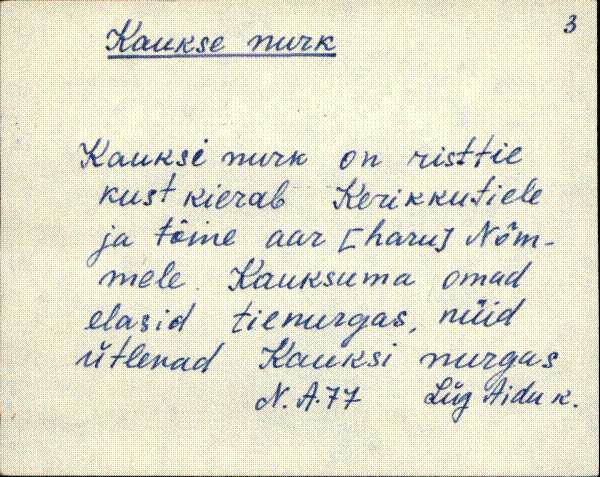 3
Kaukse nurk
Kauksi nurk on risttie
kust kierab Kerikkutiele
ja tõine aar [haru] Nõm-
mele. Kauksuma omad
elasid tienurgas, nüid
ütlevad Kauksi nurgas
N. A. 77 Lüg Aidu k.